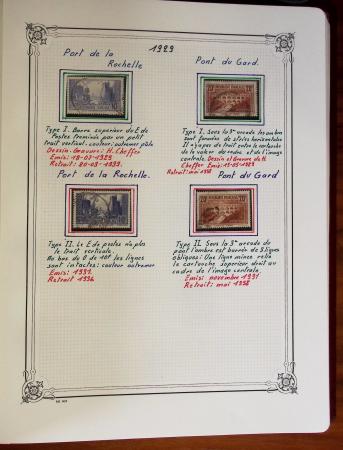 1929
Port de la
Rochelle
Pont du Gard.
Type I. Barre supérieur du E de
Postes terminée par un petit
trait vertical. couleur: outremer pâle
Dessin. Gravure: H. Cheffer
Emis: 18-03-1929
Retrait: 20-09-1932.
Type I. Sous la 3me arcade les ombres
sont formées de stries horizontales
Il n'y a pas de trait entre le cartouche
de la valeur de droite et de l'image
centrale. Dessin et Gravure de H.
Cheffer Emis: 15-05-1929
Retrait: mai 1938
Port de la Rochelle.
Pont du Gard
Type II. Le E de postes n'a plus
le trait verticale.
Au bas du 0 de 10f les lignes
sont intactes: couleur outremer
Emis: 1931.
Retrait 1936
Type II. Sous la 3me arcade du
pont l'ombre est barrée de 3 lignes
obliques: Une ligne mince relie
le cartouche supérieur droit au
cadre de l'image centrale.
Emis: novembre 1931
Retrait: mai 1938